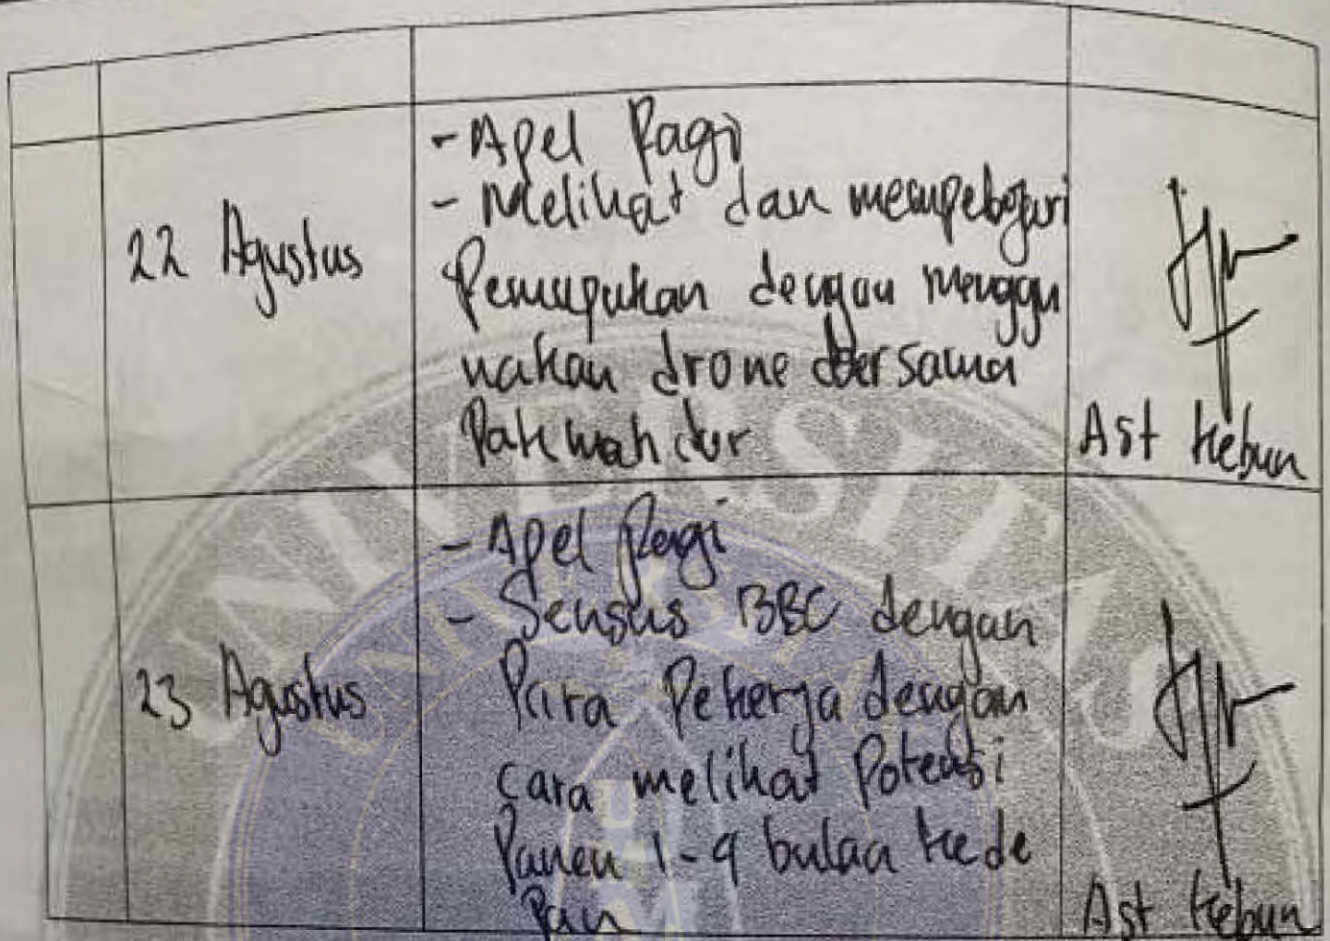 22 Agustus
- Apel Pagi
- Melihat dan mempelajari
Pemupukan dengan menggu
nakan drone bersama
Pak
Ast Kebun
23 Agustus
- Apel Pagi
- Sensus BBC dengan
Para Pekerja dengan
cara melihat Potensi
Panen 1-9 bulan kede
Pan
Ast Kebun
UNIVERSITAS
UNIVERSITAS